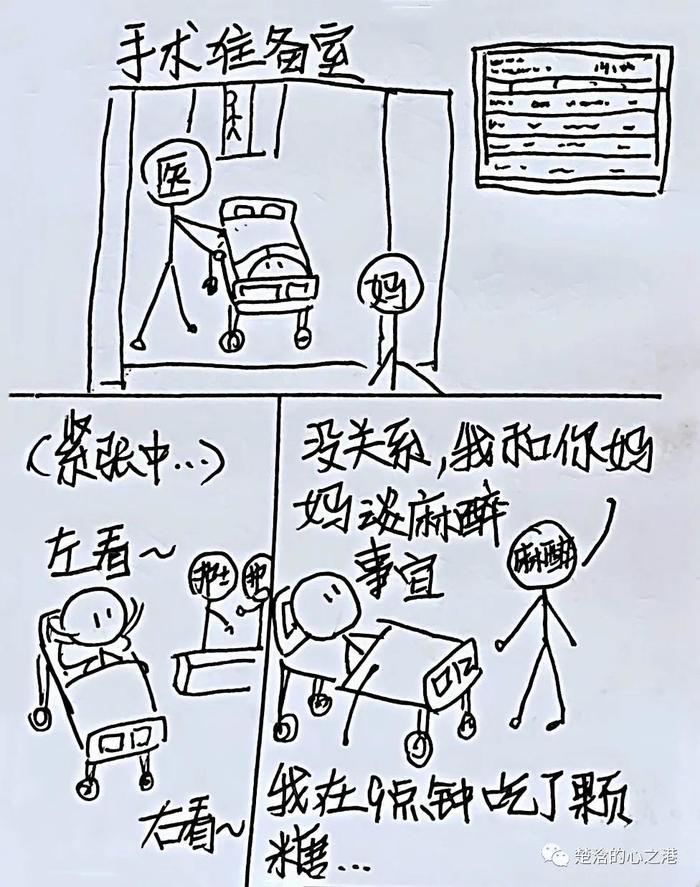 手术准备室
医
妈
(紧张中...)
左看~
护士
护
右看~
没关系,我和你妈
妈谈麻醉
事宜
麻醉
我在9点钟吃了颗
糖...
楚洽的心之港